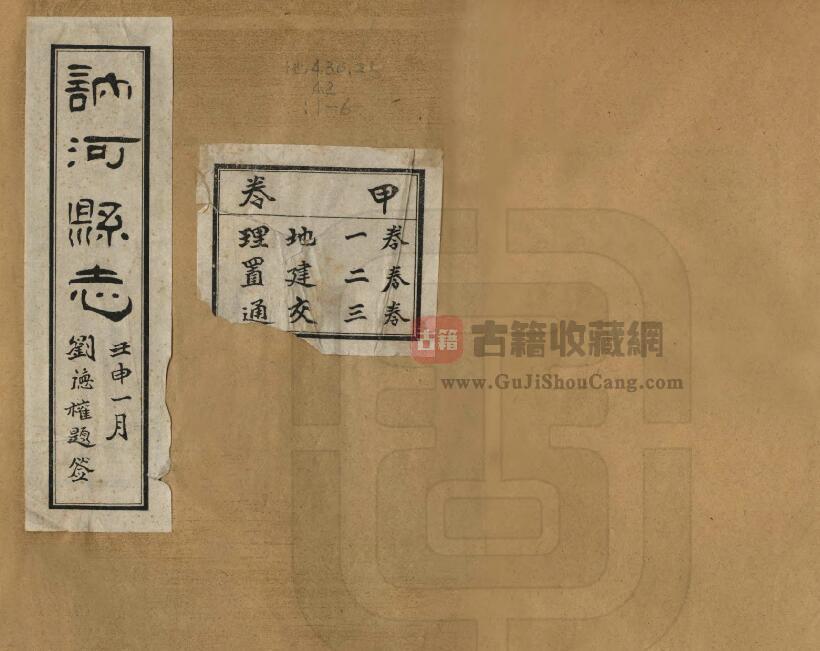 訥河縣志
壬申一月
劉德權題簽
甲卷
卷一 地理
卷二 建置
卷三 交通
古籍
古籍收藏網
www.GuJiShouCang.com